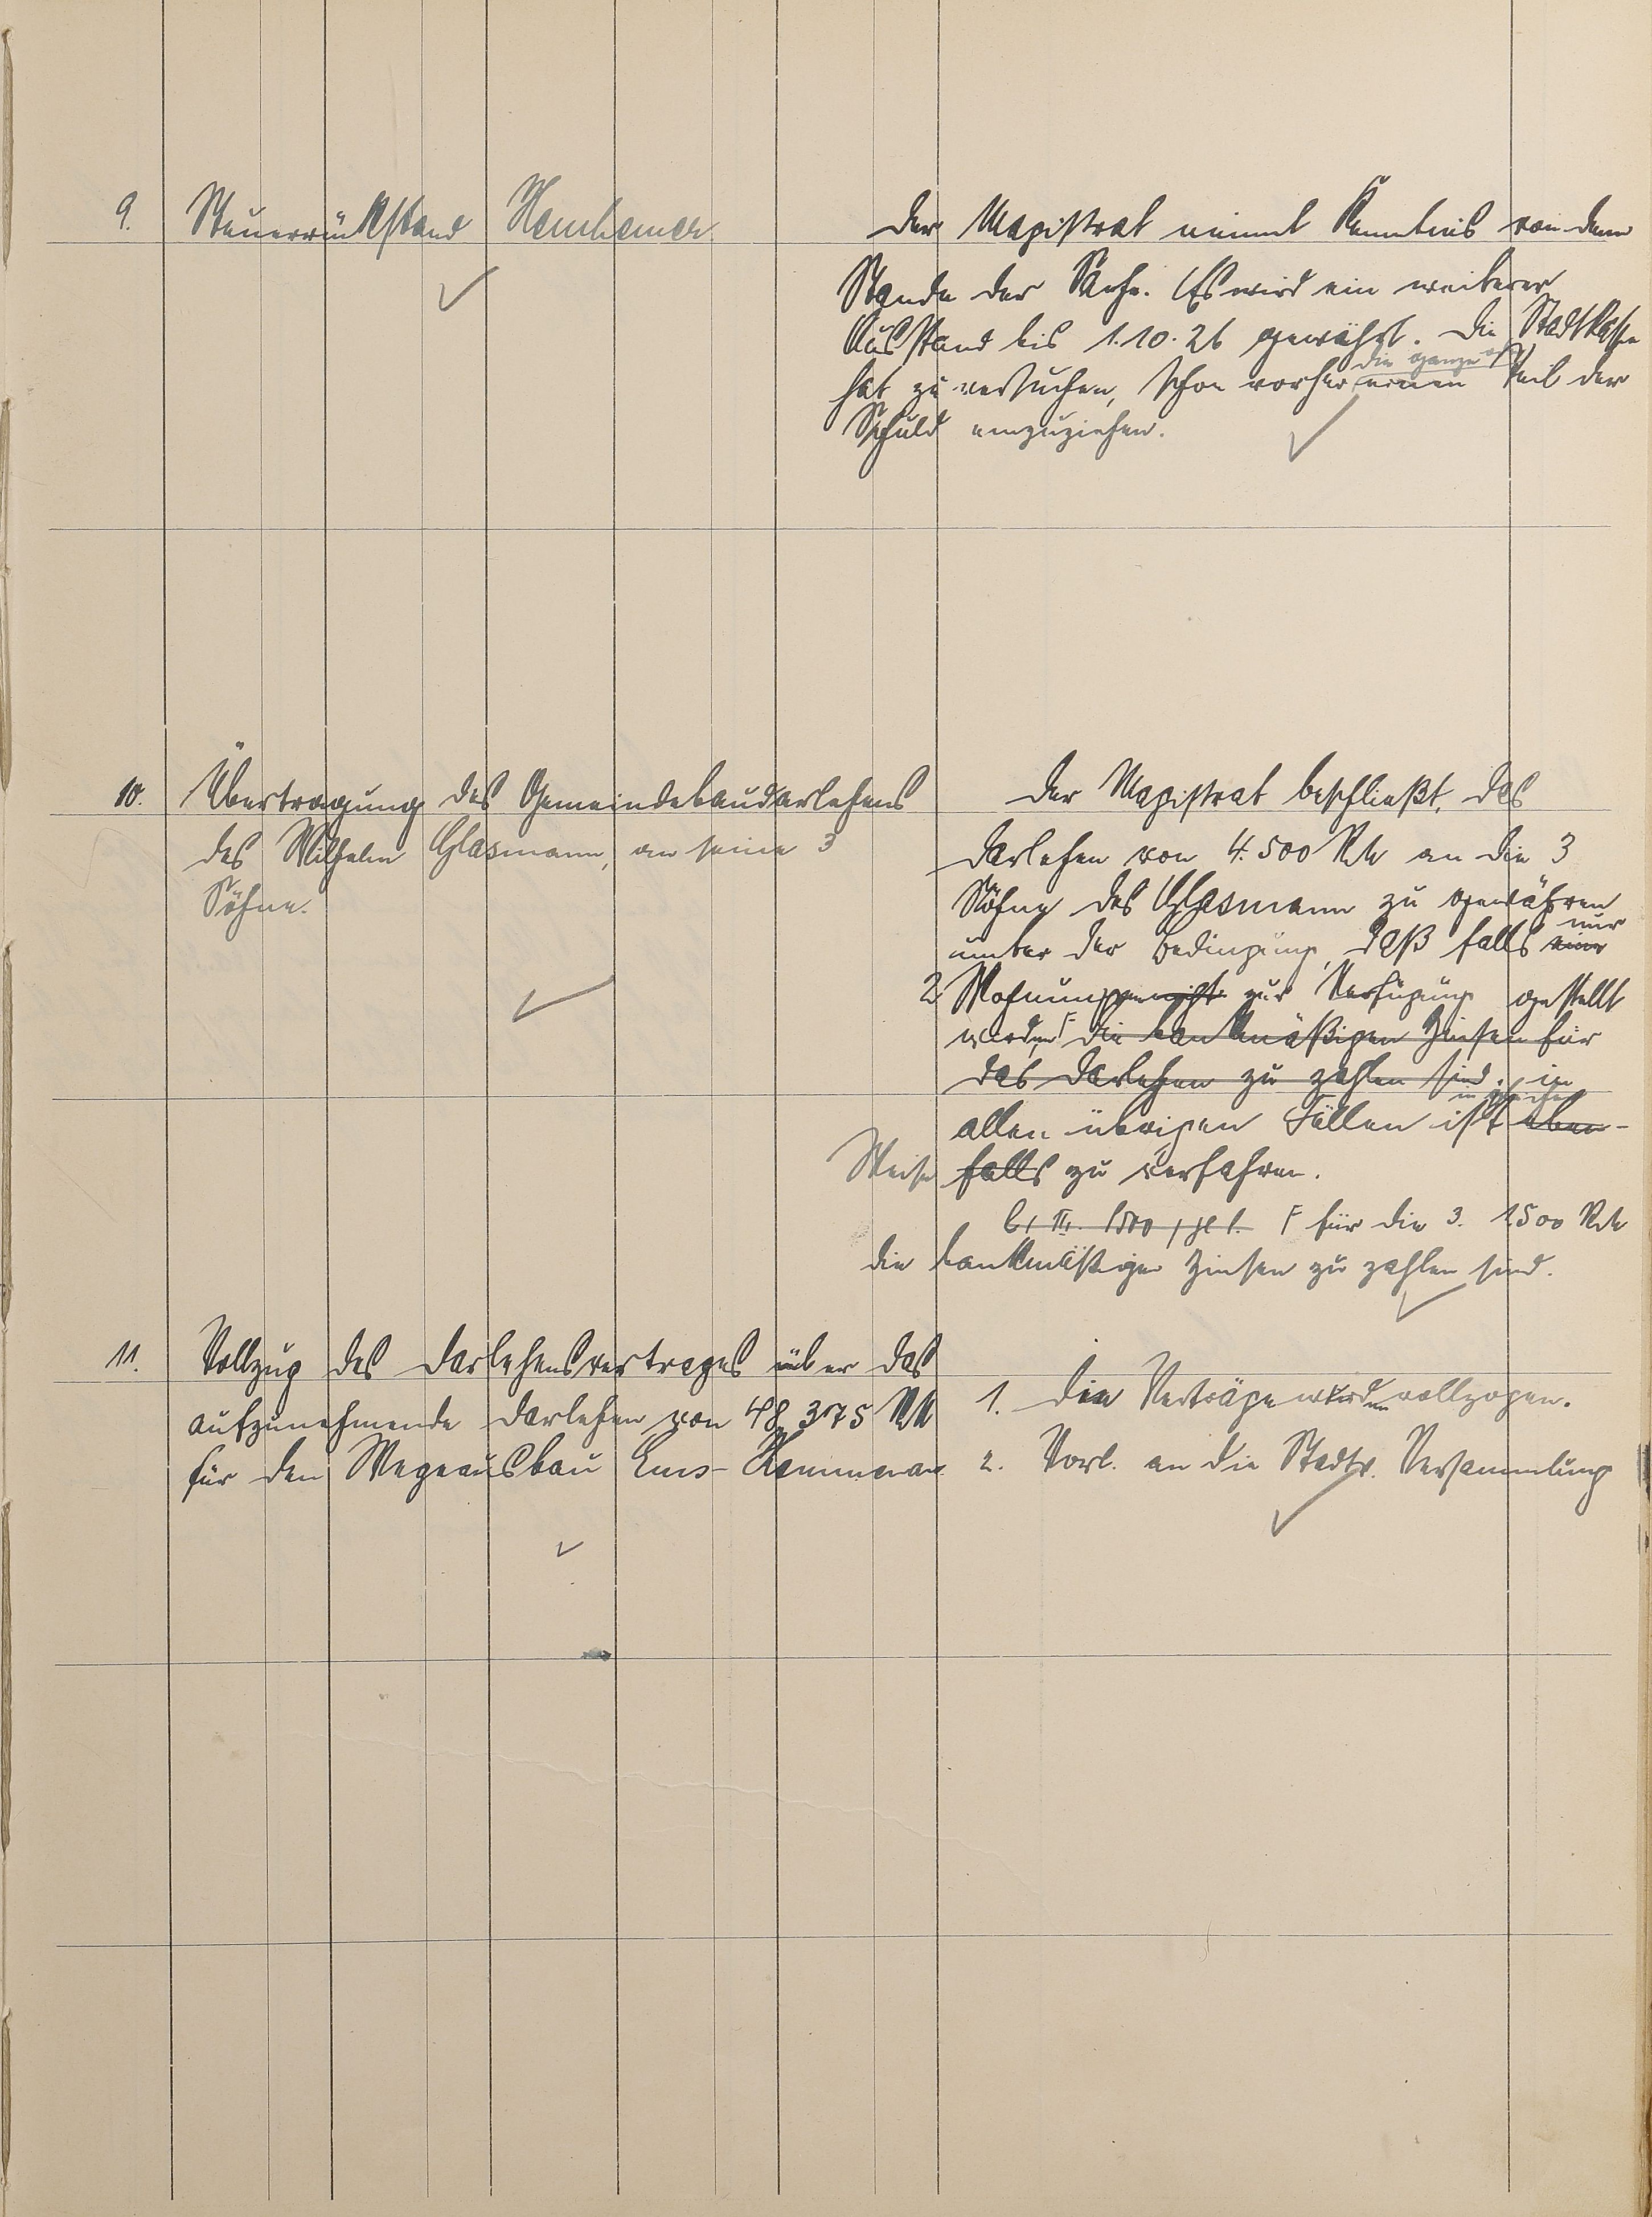 9. Steuerrückstand
Der Magistrat nimmt Kenntnis von dem
Stande der Sache. Es wird ein weiterer
Ausstand bis 1.10.26 gewährt. Die Stadtkasse
hat zu versuchen, schon vorher einen die ganze od. Teil der
Schuld einzuziehen.
10. Übertragung des Gemeindebaudarlehens
des Wilhelm Glasmann, an seine 3
Söhne.
Der Magistrat beschließt, das
Darlehen von 4.500 RM an die 3
Söhne des Glasmann zu gewähren
unter der Bedingung, daß falls eine nur
2 Wohnungen nicht zur Verfügung gestellt
werden F die bankmäßigen Zinsen für
das Darlehen zu zahlen sind. in
allen übrigen Fällen ist in gleicher eben-
Weise falls zu verfahren.
F für die 3. 1500 RM
die bankmäßigen Zinsen zu zahlen sind.
11. Vollzug des Darlehensvertrages über das
aufzunehmende Darlehen von 48375 RM
für den Wegeausbau Ems-Kemmenau
1. Die Verträge wurden vollzogen.
2. Vorl. an die Stadtv. Versammlung